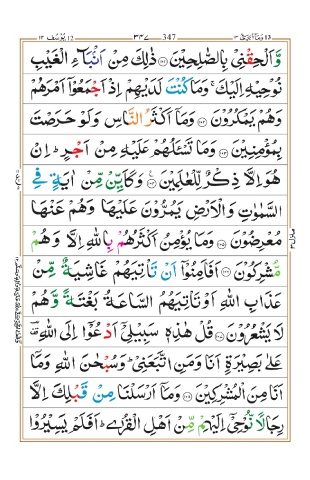 وما ابرئ ١٣ 347 ٣٤٧ يوسف ١٢
وَّاَلْحِقْنِيْ بِالصّٰلِحِيْنَ ۝١٠١ ذٰلِكَ مِنْ اَنْۢبَآءِ الْغَيْبِ
نُوْحِيْهِ اِلَيْكَ ۚ وَمَا كُنْتَ لَدَيْهِمْ اِذْ اَجْمَعُوْۤا اَمْرَهُمْ
وَهُمْ يَمْكُرُوْنَ ۝١٠٢ وَمَاۤ اَكْثَرُ النَّاسِ وَلَوْ حَرَصْتَ
بِمُؤْمِنِيْنَ ۝١٠٣ وَمَا تَسْـَٔلُهُمْ عَلَيْهِ مِنْ اَجْرٍ ؕ اِنْ
هُوَ اِلَّا ذِكْرٌ لِّلْعٰلَمِيْنَ ۝١٠٤ وَكَاَيِّنْ مِّنْ اٰيَةٍ فِي
السَّمٰوٰتِ وَالْاَرْضِ يَمُرُّوْنَ عَلَيْهَا وَهُمْ عَنْهَا
مُعْرِضُوْنَ ۝١٠٥ وَمَا يُؤْمِنُ اَكْثَرُهُمْ بِاللّٰهِ اِلَّا وَهُمْ
مُّشْرِكُوْنَ ۝١٠٦ اَفَاَمِنُوْۤا اَنْ تَاْتِيَهُمْ غَاشِيَةٌ مِّنْ
عَذَابِ اللّٰهِ اَوْ تَاْتِيَهُمُ السَّاعَةُ بَغْتَةً وَّهُمْ
لَا يَشْعُرُوْنَ ۝١٠٧ قُلْ هٰذِهٖ سَبِيْلِيْۤ اَدْعُوْۤا اِلَى اللّٰهِ ؔ
عَلٰى بَصِيْرَةٍ اَنَا وَمَنِ اتَّبَعَنِيْ ؕ وَسُبْحٰنَ اللّٰهِ وَمَاۤ
اَنَا مِنَ الْمُشْرِكِيْنَ ۝١٠٨ وَمَاۤ اَرْسَلْنَا مِنْ قَبْلِكَ اِلَّا
رِجَالًا نُّوْحِيْۤ اِلَيْهِمْ مِّنْ اَهْلِ الْقُرٰى ؕ اَفَلَمْ يَسِيْرُوْا